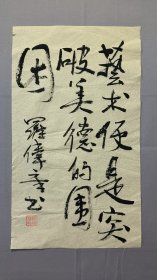 藝术便是突
破美德的围
困
羅偉章书